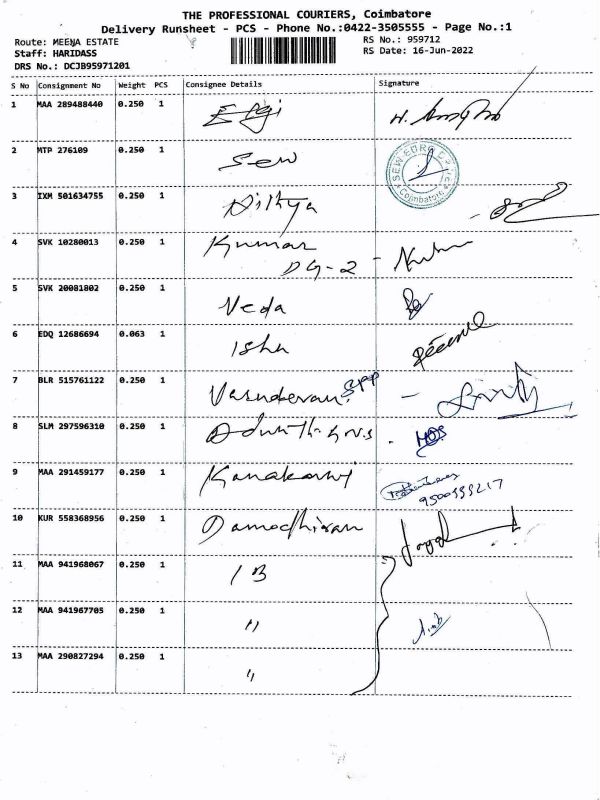 THE PROFESSIONAL COURIERS, Coimbatore
Delivery Runsheet - PCS - Phone No.:0422-3505555 - Page No.:1
Route: MEENA ESTATE
RS No.: 959712
Staff: HARIDASS
RS Date: 16-Jun-2022
DRS No.: DCJB95971201
S No Consignment No Weight PCS Consignee Details Signature
1 MAA 289488440 0.250 1
2 MTP 276109 0.250 1 Sew
SEW EURO
Coimbatore
3 IXM 501634755 0.250 1 Dithya
4 SVK 10280013 0.250 1 Kumar
DG-2
5 SVK 20081802 0.250 1 Veda
6 EDQ 12686694 0.063 1 Isha
7 BLR 515761122 0.250 1 Vasudevan
8 SLM 297596310 0.250 1
9 MAA 291459177 0.250 1
10 KUR 558368956 0.250 1 Damodhiran
11 MAA 941968067 0.250 1
12 MAA 941967705 0.250 1 "
13 MAA 290827294 0.250 1 "